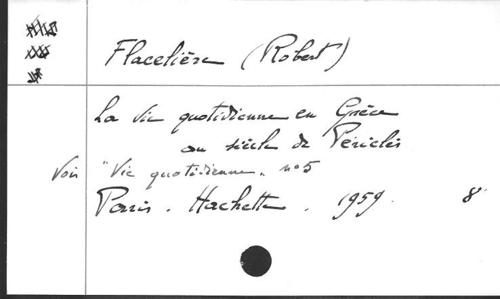 Flacelière (Robert)
La Vie quotidienne en Grèce
au siècle de Périclès
Voir "Vie quotidienne" n° 5
Paris. Hachette. 1959. 8°